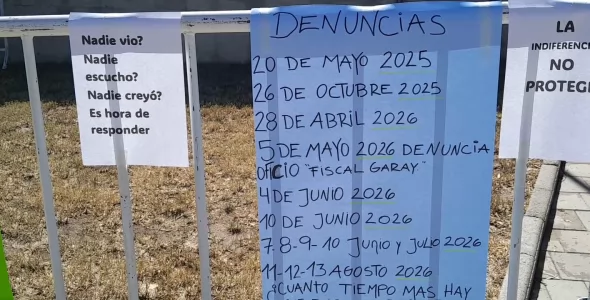 Nadie vio?
Nadie
escucho?
Nadie creyó?
Es hora de
responder
DENUNCIAS
20 DE MAYO 2025
26 DE OCTUBRE 2025
28 DE ABRIL 2026
5 DE MAYO 2026 DENUNCIA
OFICIO "FISCAL GARAY"
4 DE JUNIO 2026
10 DE JUNIO 2026
7-8-9-10 JUNIO y JULIO 2026
11-12-13 AGOSTO 2026
¿CUANTO TIEMPO MAS HAY
LA
INDIFERENC
NO
PROTEGE